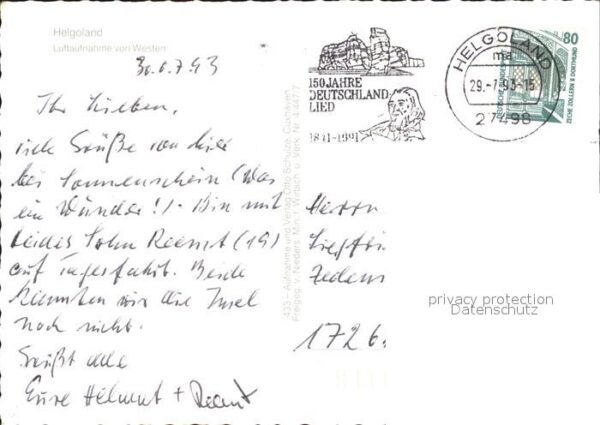 Helgoland
Luftaufnahme von Westen
7.93
Ihr Lieben,
viele Grüße von hier
bei Sonnenschein (Was
ein Wunder!) - Bin mit
Sohn Reemt (19)
auf Tagesfahrt. Beide
kannten wir die Insel
noch nicht.
Grüßt alle
Eure Helmut + Reemt
433 - Aufnahme und Verlag Schulze, Cuxhaven
Freigeg. v. Nieders. Min. f. Wirtsch. u. Verk. Nr.
150 JAHRE
DEUTSCHLAND
LIED
1841-1991
HELGOLAND
ma
29.-7.93-15
27498
80
DEUTSCHE BUNDESPOST
ZECHE ZOLLERN II DORTMUND
Herrn
1726
privacy protection
Datenschutz